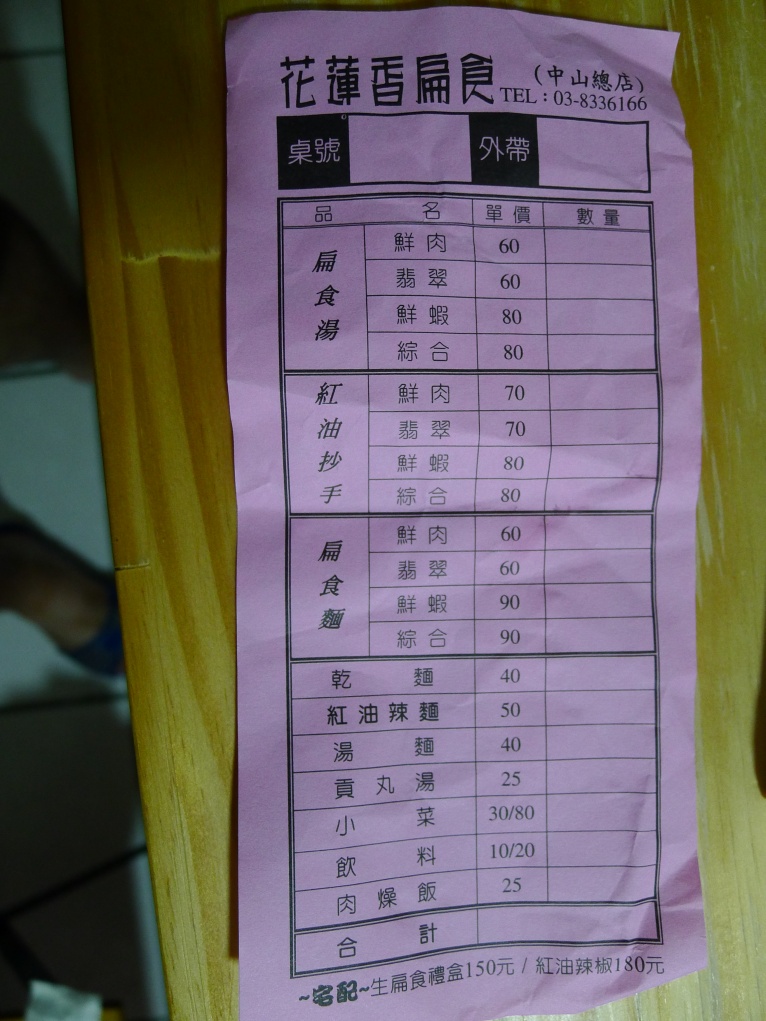 花蓮香扁食 (中山總店)
TEL：03-8336166
桌號 外帶
品 名 單價 數量
扁食湯
鮮肉 60
翡翠 60
鮮蝦 80
綜合 80
紅油抄手
鮮肉 70
翡翠 70
鮮蝦 80
綜合 80
扁食麵
鮮肉 60
翡翠 60
鮮蝦 90
綜合 90
乾麵 40
紅油辣麵 50
湯麵 40
貢丸湯 25
小菜 30/80
飲料 10/20
肉燥飯 25
合計
~宅配~生扁食禮盒150元 / 紅油辣椒180元